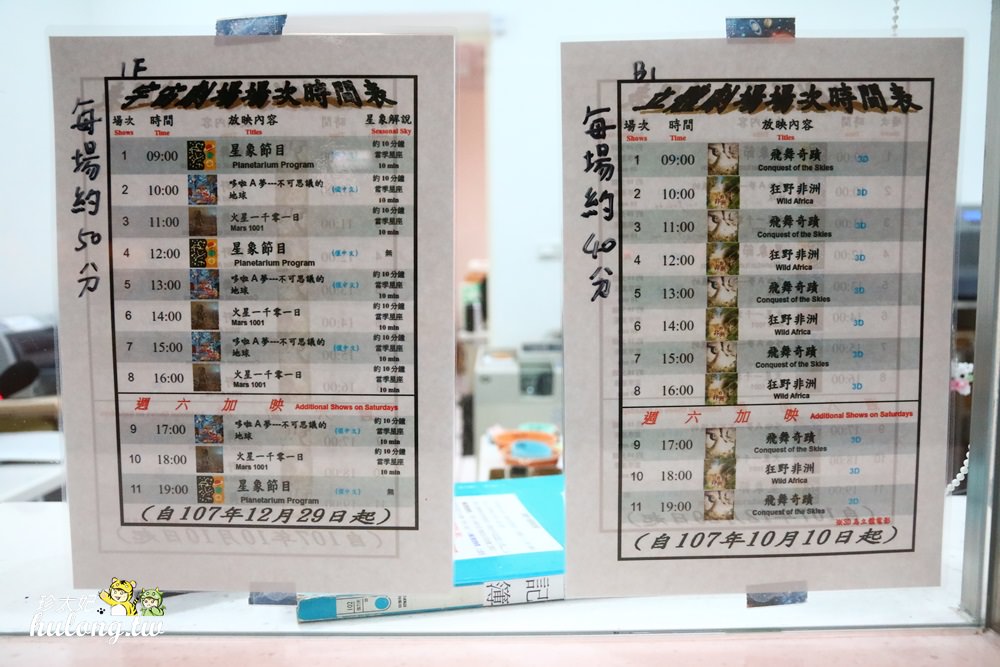 1F
宇宙劇場場次時間表
每場約50分
場次 時間 放映內容 星象解說
Shows Time Titles Seasonal Sky
1 09:00 星象節目 Planetarium Program 約10分鐘 當季星座 10 min
2 10:00 哆啦A夢---不可思議的地球 (僅中文) 約10分鐘 當季星座 10 min
3 11:00 火星一千零一日 Mars 1001 約10分鐘 當季星座 10 min
4 12:00 星象節目 Planetarium Program (僅中文) 無
5 13:00 哆啦A夢---不可思議的地球 (僅中文) 約10分鐘 當季星座 10 min
6 14:00 火星一千零一日 Mars 1001 約10分鐘 當季星座 10 min
7 15:00 哆啦A夢---不可思議的地球 (僅中文) 約10分鐘 當季星座 10 min
8 16:00 火星一千零一日 Mars 1001 約10分鐘 當季星座 10 min
週六加映 Additional Shows on Saturdays
9 17:00 哆啦A夢---不可思議的地球 (僅中文) 約10分鐘 當季星座 10 min
10 18:00 火星一千零一日 Mars 1001 約10分鐘 當季星座 10 min
11 19:00 星象節目 Planetarium Program (僅中文) 無
(自107年12月29日起)
B1
立體劇場場次時間表
每場約40分
場次 時間 放映內容
Shows Time Titles
1 09:00 飛舞奇蹟 Conquest of the Skies 3D
2 10:00 狂野非洲 Wild Africa 3D
3 11:00 飛舞奇蹟 Conquest of the Skies 3D
4 12:00 狂野非洲 Wild Africa 3D
5 13:00 飛舞奇蹟 Conquest of the Skies 3D
6 14:00 狂野非洲 Wild Africa 3D
7 15:00 飛舞奇蹟 Conquest of the Skies 3D
8 16:00 狂野非洲 Wild Africa 3D
週六加映 Additional Shows on Saturdays
9 17:00 飛舞奇蹟 Conquest of the Skies 3D
10 18:00 狂野非洲 Wild Africa 3D
11 19:00 飛舞奇蹟 Conquest of the Skies 3D
※3D為立體電影
(自107年10月10日起)
記簿
珍太好
hulong.tw